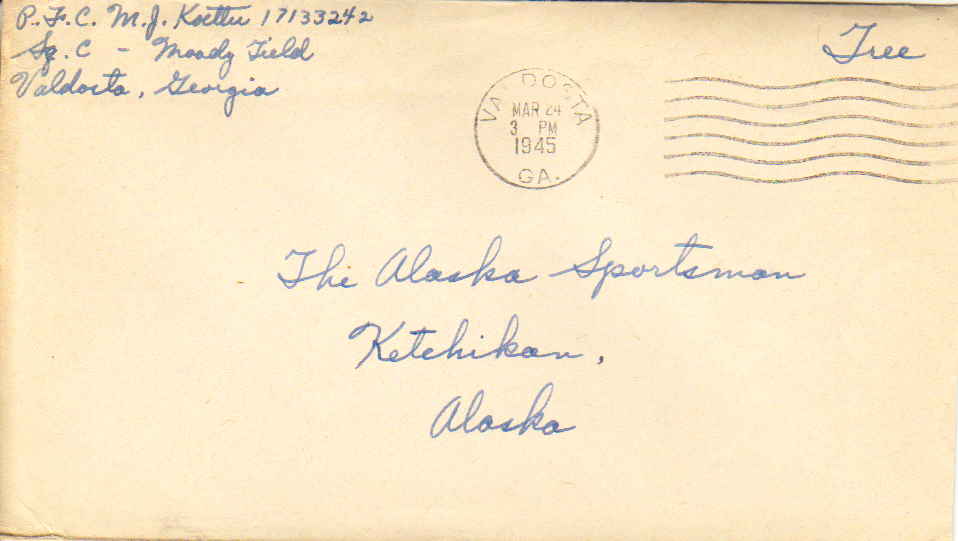 P.F.C. M.J. Koetter 17133242
Sq. C - Moody Field
Valdosta, Georgia
Free
VALDOSTA
MAR 24
3 PM
1945
GA.
The Alaska Sportsman
Ketchikan,
Alaska